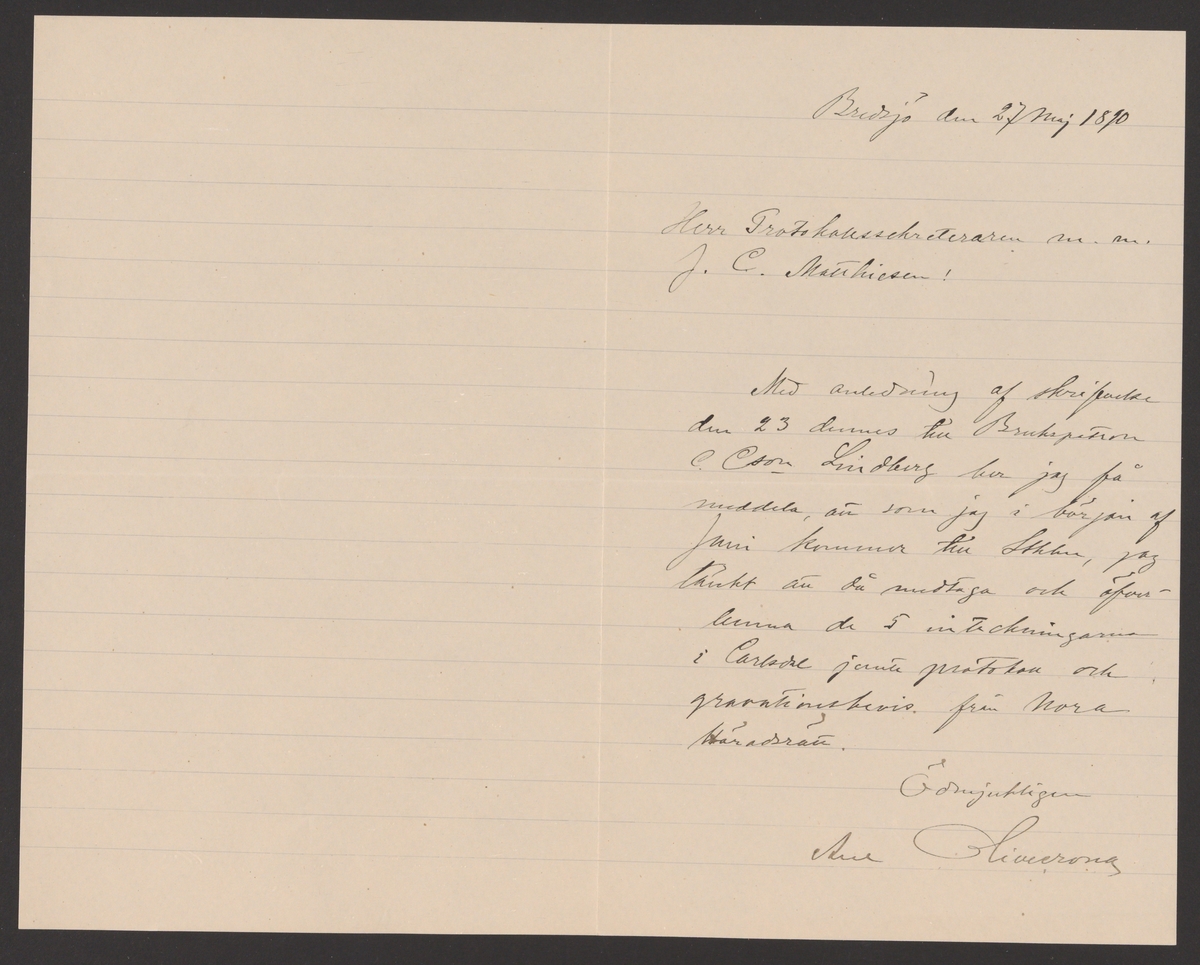 Bredsjö den 27 Maj 1890
Herr Protokollssekreteraren m. m.
J. C. Matthiesen!
Med anledning af skrifvelse
den 23 dennes till Brukspatron
C. Cson Lindberg ber jag få
meddela, att som jag i början af
Juni kommer till Sthlm, jag
tänkt att då medtaga och öfver-
lemna de 5 inteckningarna
i Carlsdal jemte protokoll och
gravationsbevis från Nora
Häradsrätt.
Ödmjukligen
Axel Olivecrona